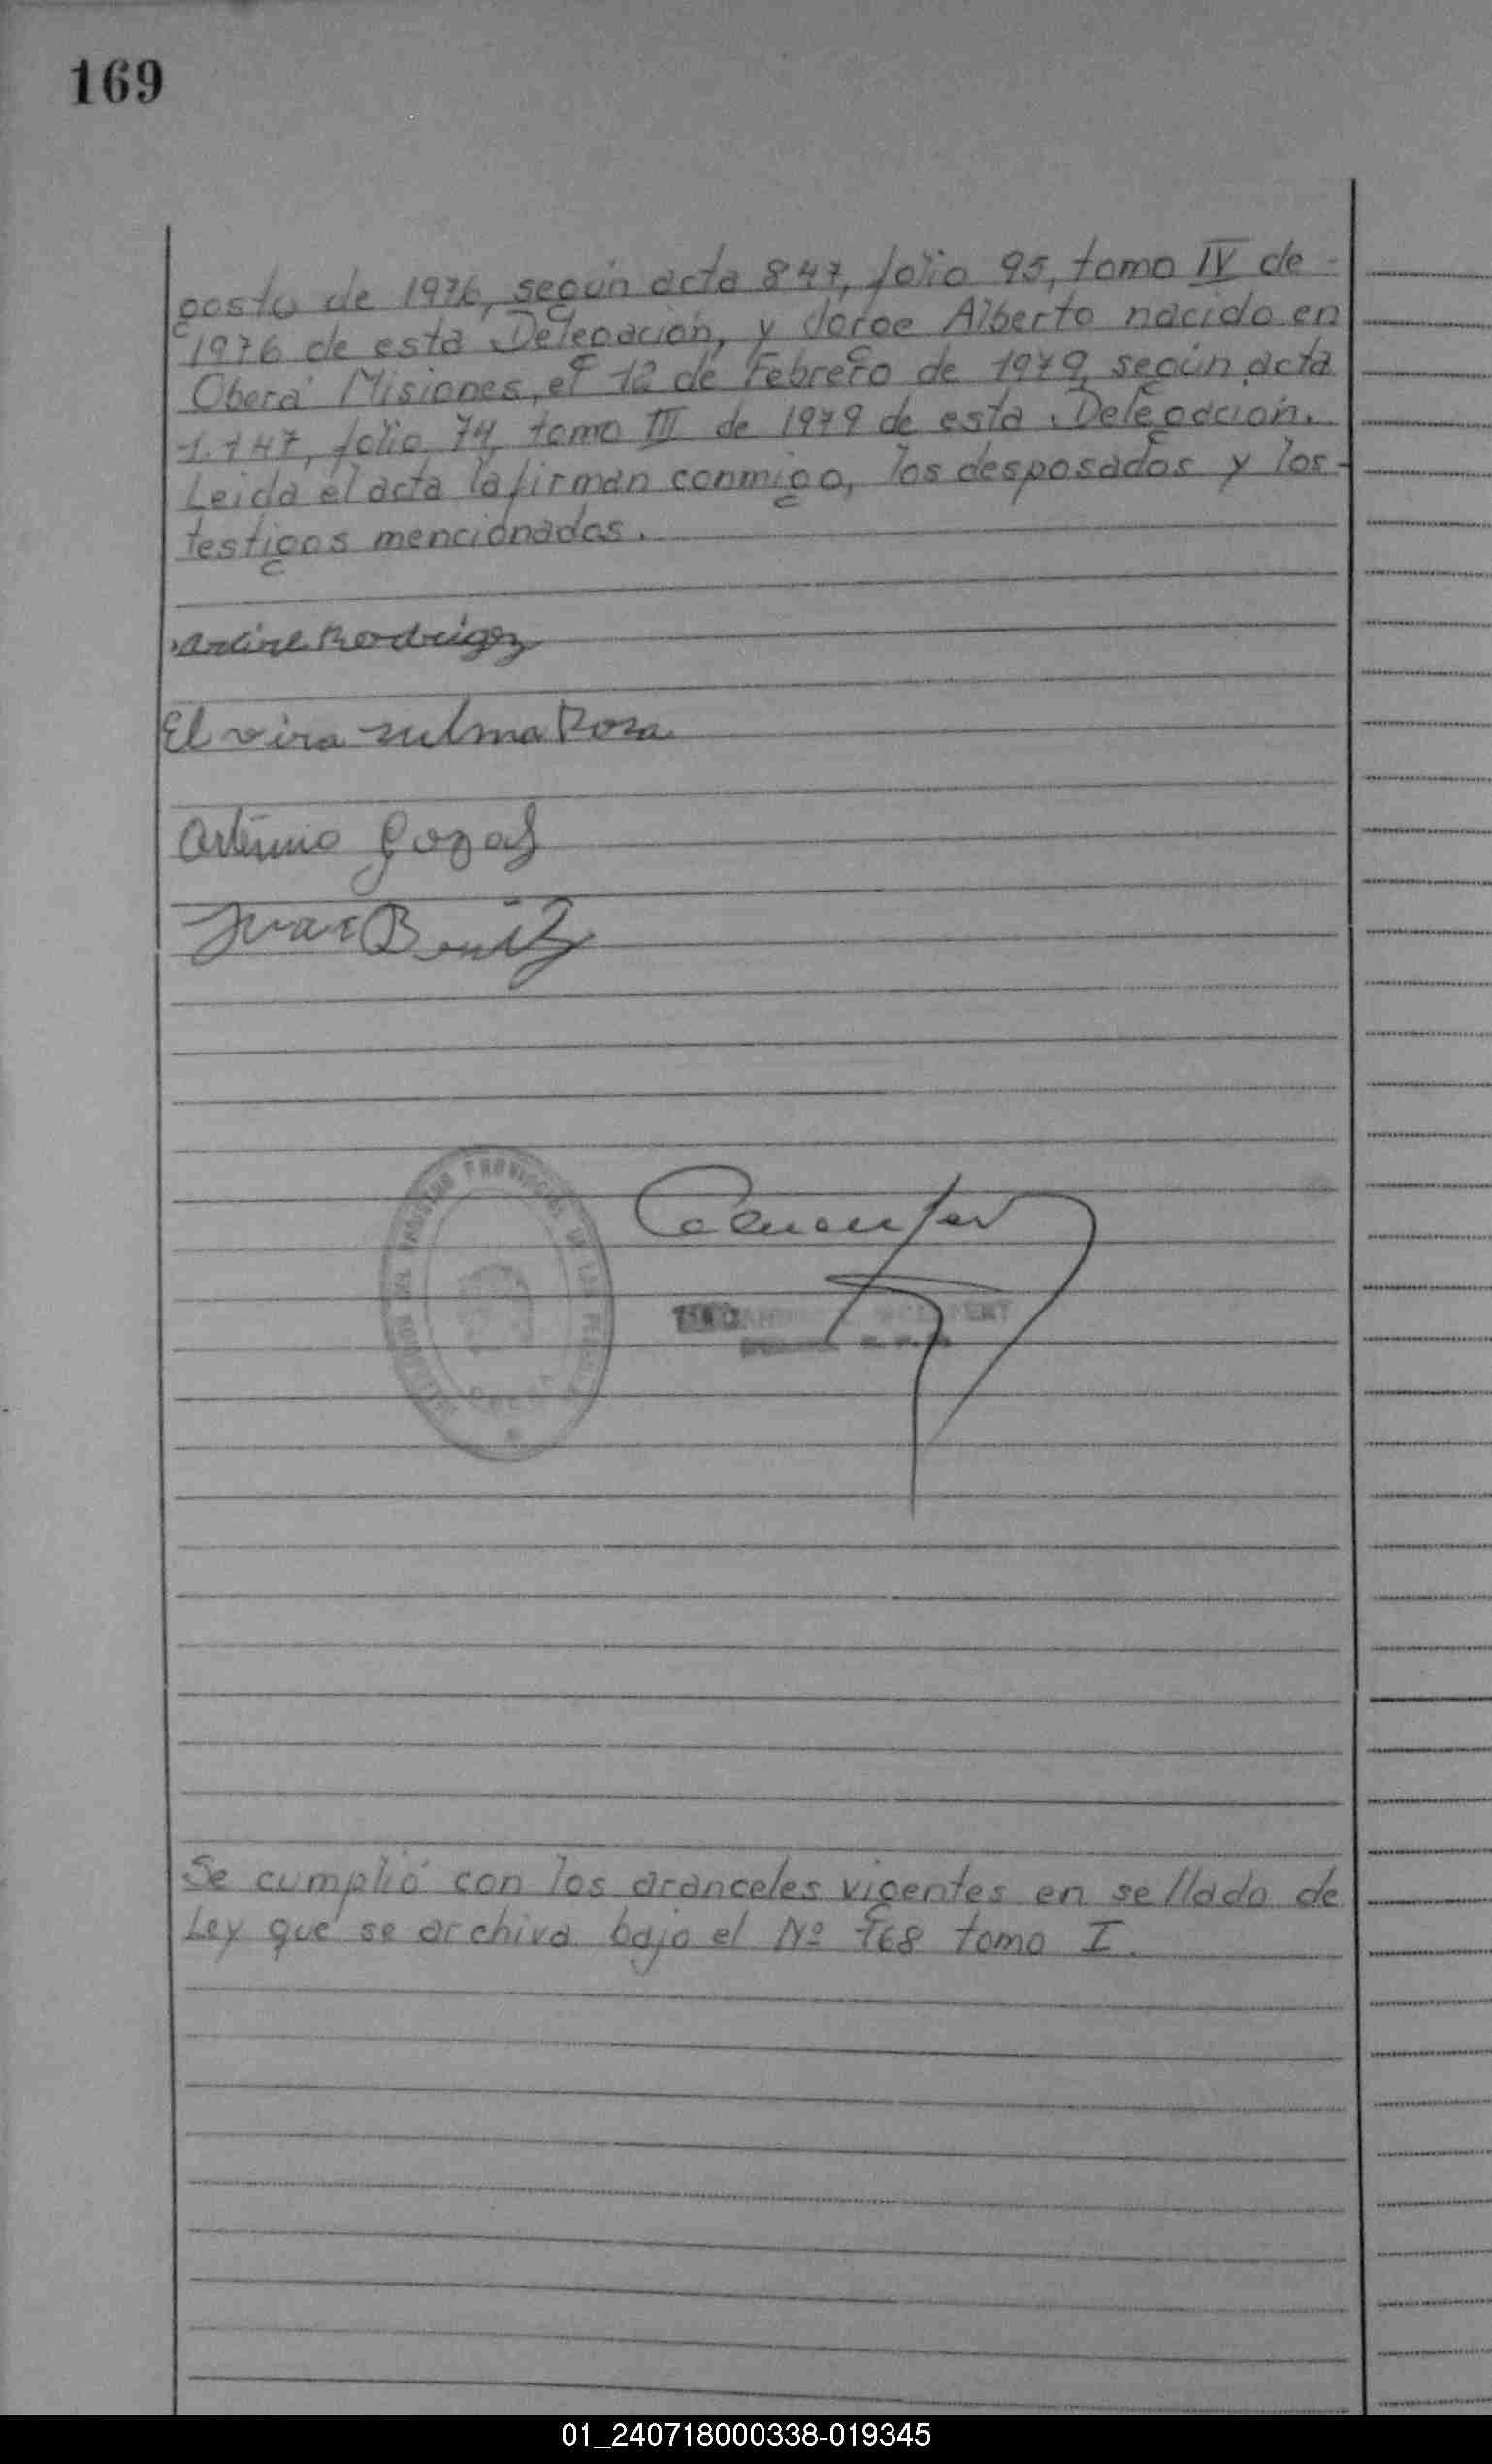 169
gosto de 1976, según acta 847, folio 95, tomo IV de -
1976 de esta Delegación, y Jorge Alberto nacido en
Oberá Misiones, el 12 de Febrero de 1979, según acta
1.747, folio 74, tomo III de 1979 de esta Delegación.
Leida el acta la firman conmigo, los desposados y los -
testigos mencionados.
Rodriguez
Elvira sulma Rosa
Artemio
Juan Benitez
REGISTRO PROVINCIAL DE LAS PERSONAS
OBERA
Se cumplió con los aranceles vigentes en sellado de
Ley que se archiva bajo el Nº 168 tomo I.
01_240718000338-019345